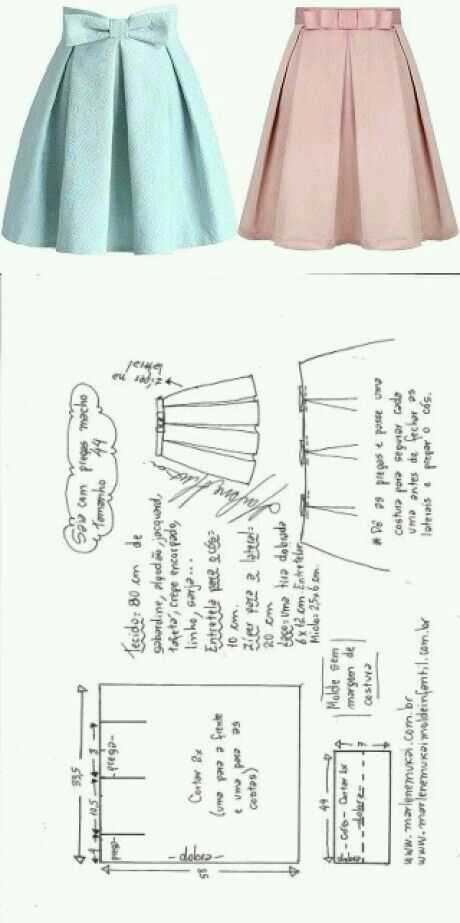 Saia com pregas macho
Tamanho 44
lateral
Tecido= 80 cm de
gabardine, algodão, jacquard,
tafetá, crepe encorpado,
linho, sarja...
Entretela para o cós=
10 cm.
Zíper para a lateral=
20 cm
Laço= uma tira dobrada
6 x 12 cm Entretelar
Miolo= 2,5 x 6 cm.
# Dê as pregas e passe uma
costura para segurar cada
uma antes de fechar as
laterais e pregar o cós.
33,5
4
10,5
8
prega
prega
Cortar 2x
(uma para a frente
e uma para as
costas)
- dobra -
58
Molde sem
margem de
costura
44
7
- Cós - Cortar 1x
dobra
dobra
www.marlenemukai.com.br
www.marlenemukaimoldeinfantil.com.br